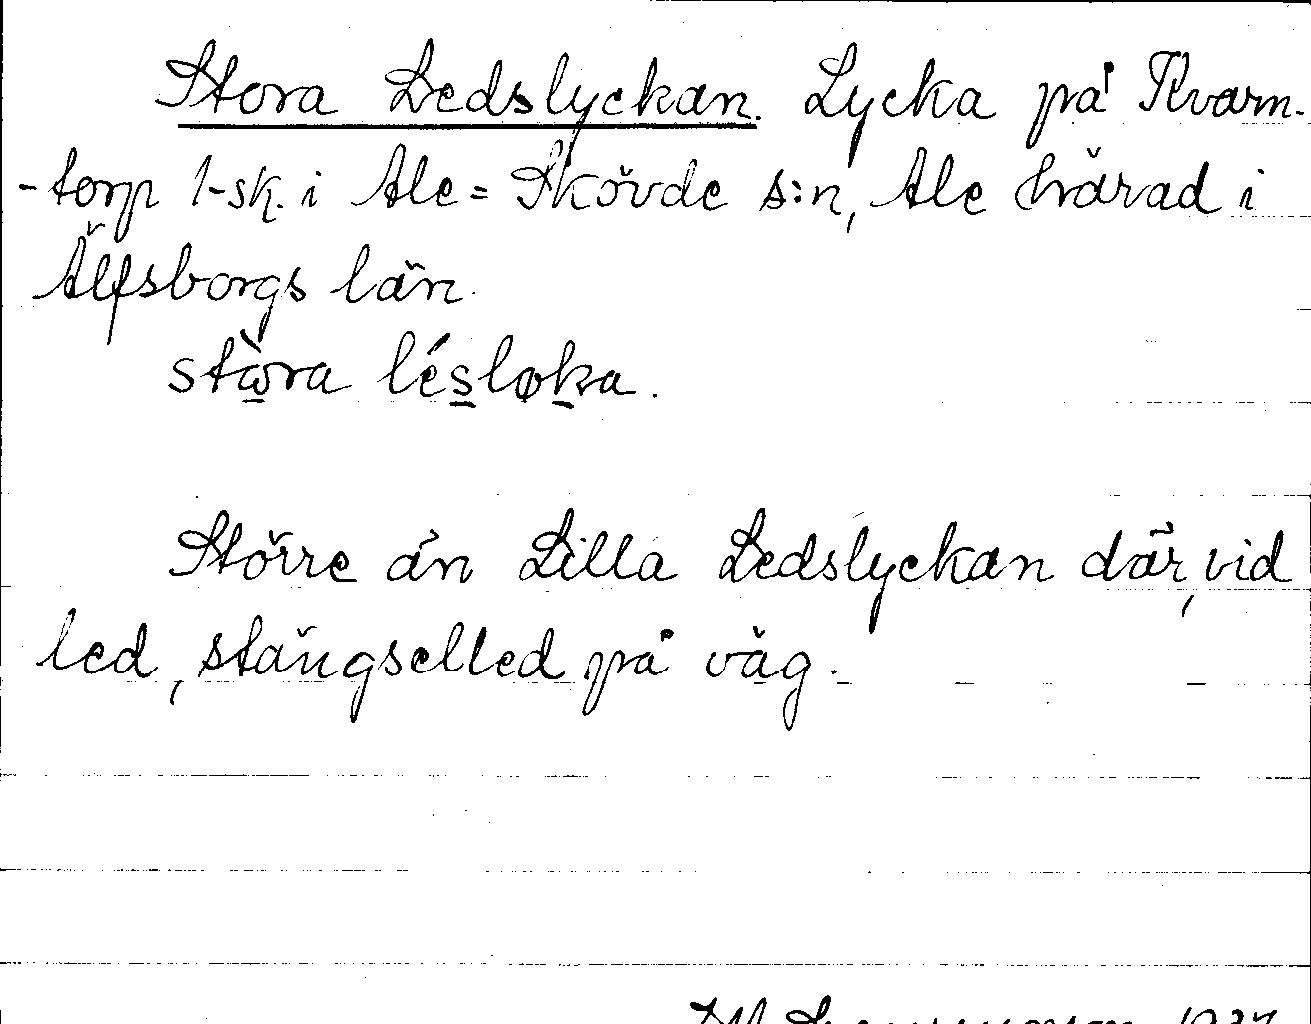 Stora Ledslyckan. Lycka på Kvarn-
-torp 1-sk. i Ale=Skövde s:n, Ale härad i
Älfsborgs län.
stωra lésløka.
Större än Lilla Ledslyckan där, vid
led, stängselled på väg.